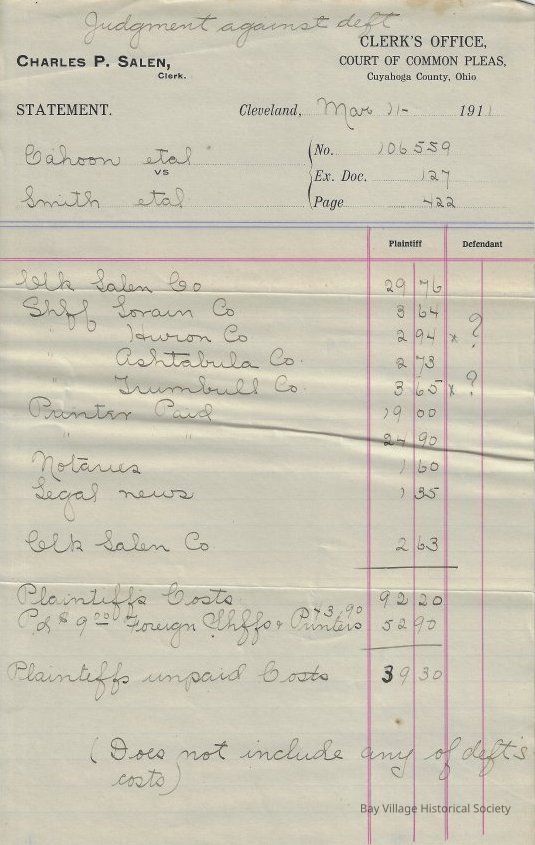 Judgment against deft
CLERK'S OFFICE,
CHARLES P. SALEN,
Clerk.
COURT OF COMMON PLEAS,
Cuyahoga County, Ohio
STATEMENT.
Cleveland, Mar 11- 1911
Cahoon etal
vs
Smith etal
No. 106559
Ex. Doc. 127
Page 422
Plaintiff Defendant
Clk Salen Co 29 76
Shff Lorain Co 3 64
" Huron Co 2 94 x ?
" Ashtabula Co. 2 73
" Trumbull Co. 3 65 x ?
Printer Paid 19 00
" " 24 90
Notaries 1 60
Legal news 1 35
Clk Salen Co 2 63
Plaintiffs Costs 92 20
Pd $ 9 00 Foreign Shffs & Printers 43.90 52 90
Plaintiffs unpaid Costs 39 30
(Does not include any of deft's
costs)
Bay Village Historical Society